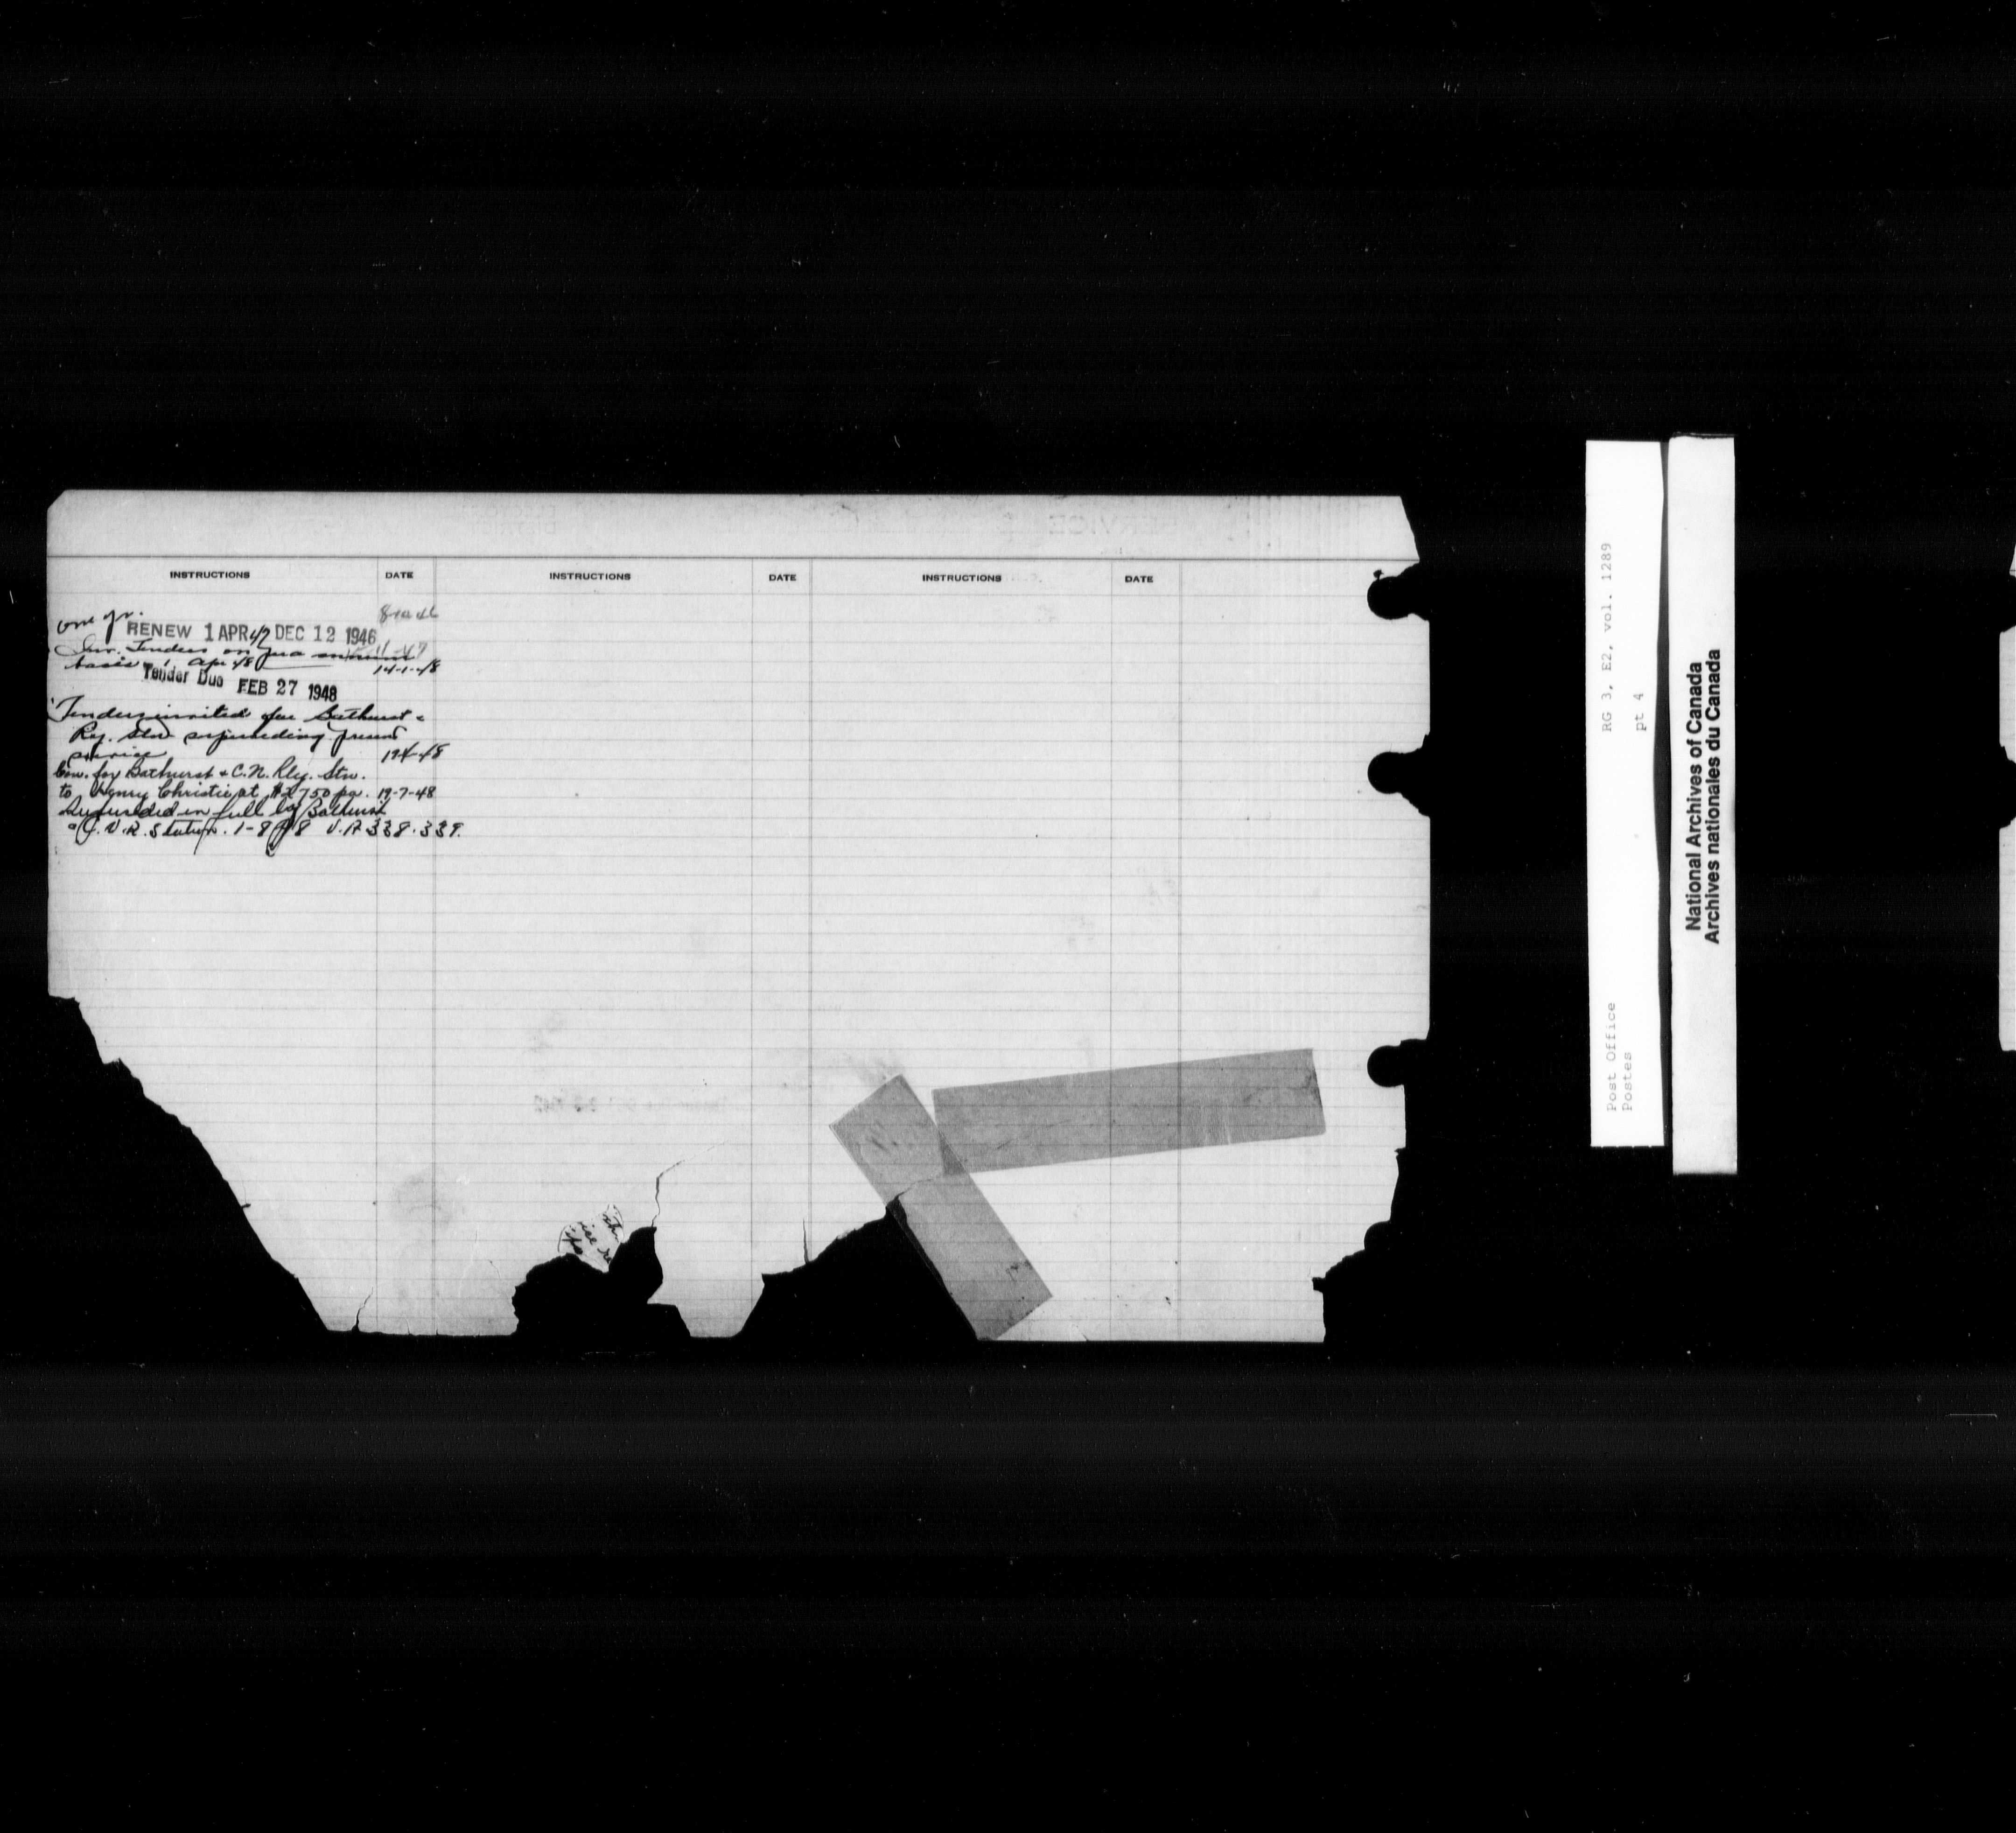 INSTRUCTIONS DATE INSTRUCTIONS DATE INSTRUCTIONS DATE
one yr.
RENEW 1 APR 47 DEC 12 1946
Inv. Tenders on per annum
basis 1 Apr 48 14-1-48
Tender Due FEB 27 1948
Tenders invited for Bathurst &
Ry. Stn superseding present
service
Con. for Bathurst & C.N. Rly. Stn.
to Henry Christie at $2750 pa. 19-7-48
Superseded in full by Bathurst
Station. 1-8-48 338-339.
RG 3, E2, vol. 1289
pt 4
Post Office
Postes
National Archives of Canada
Archives nationales du Canada